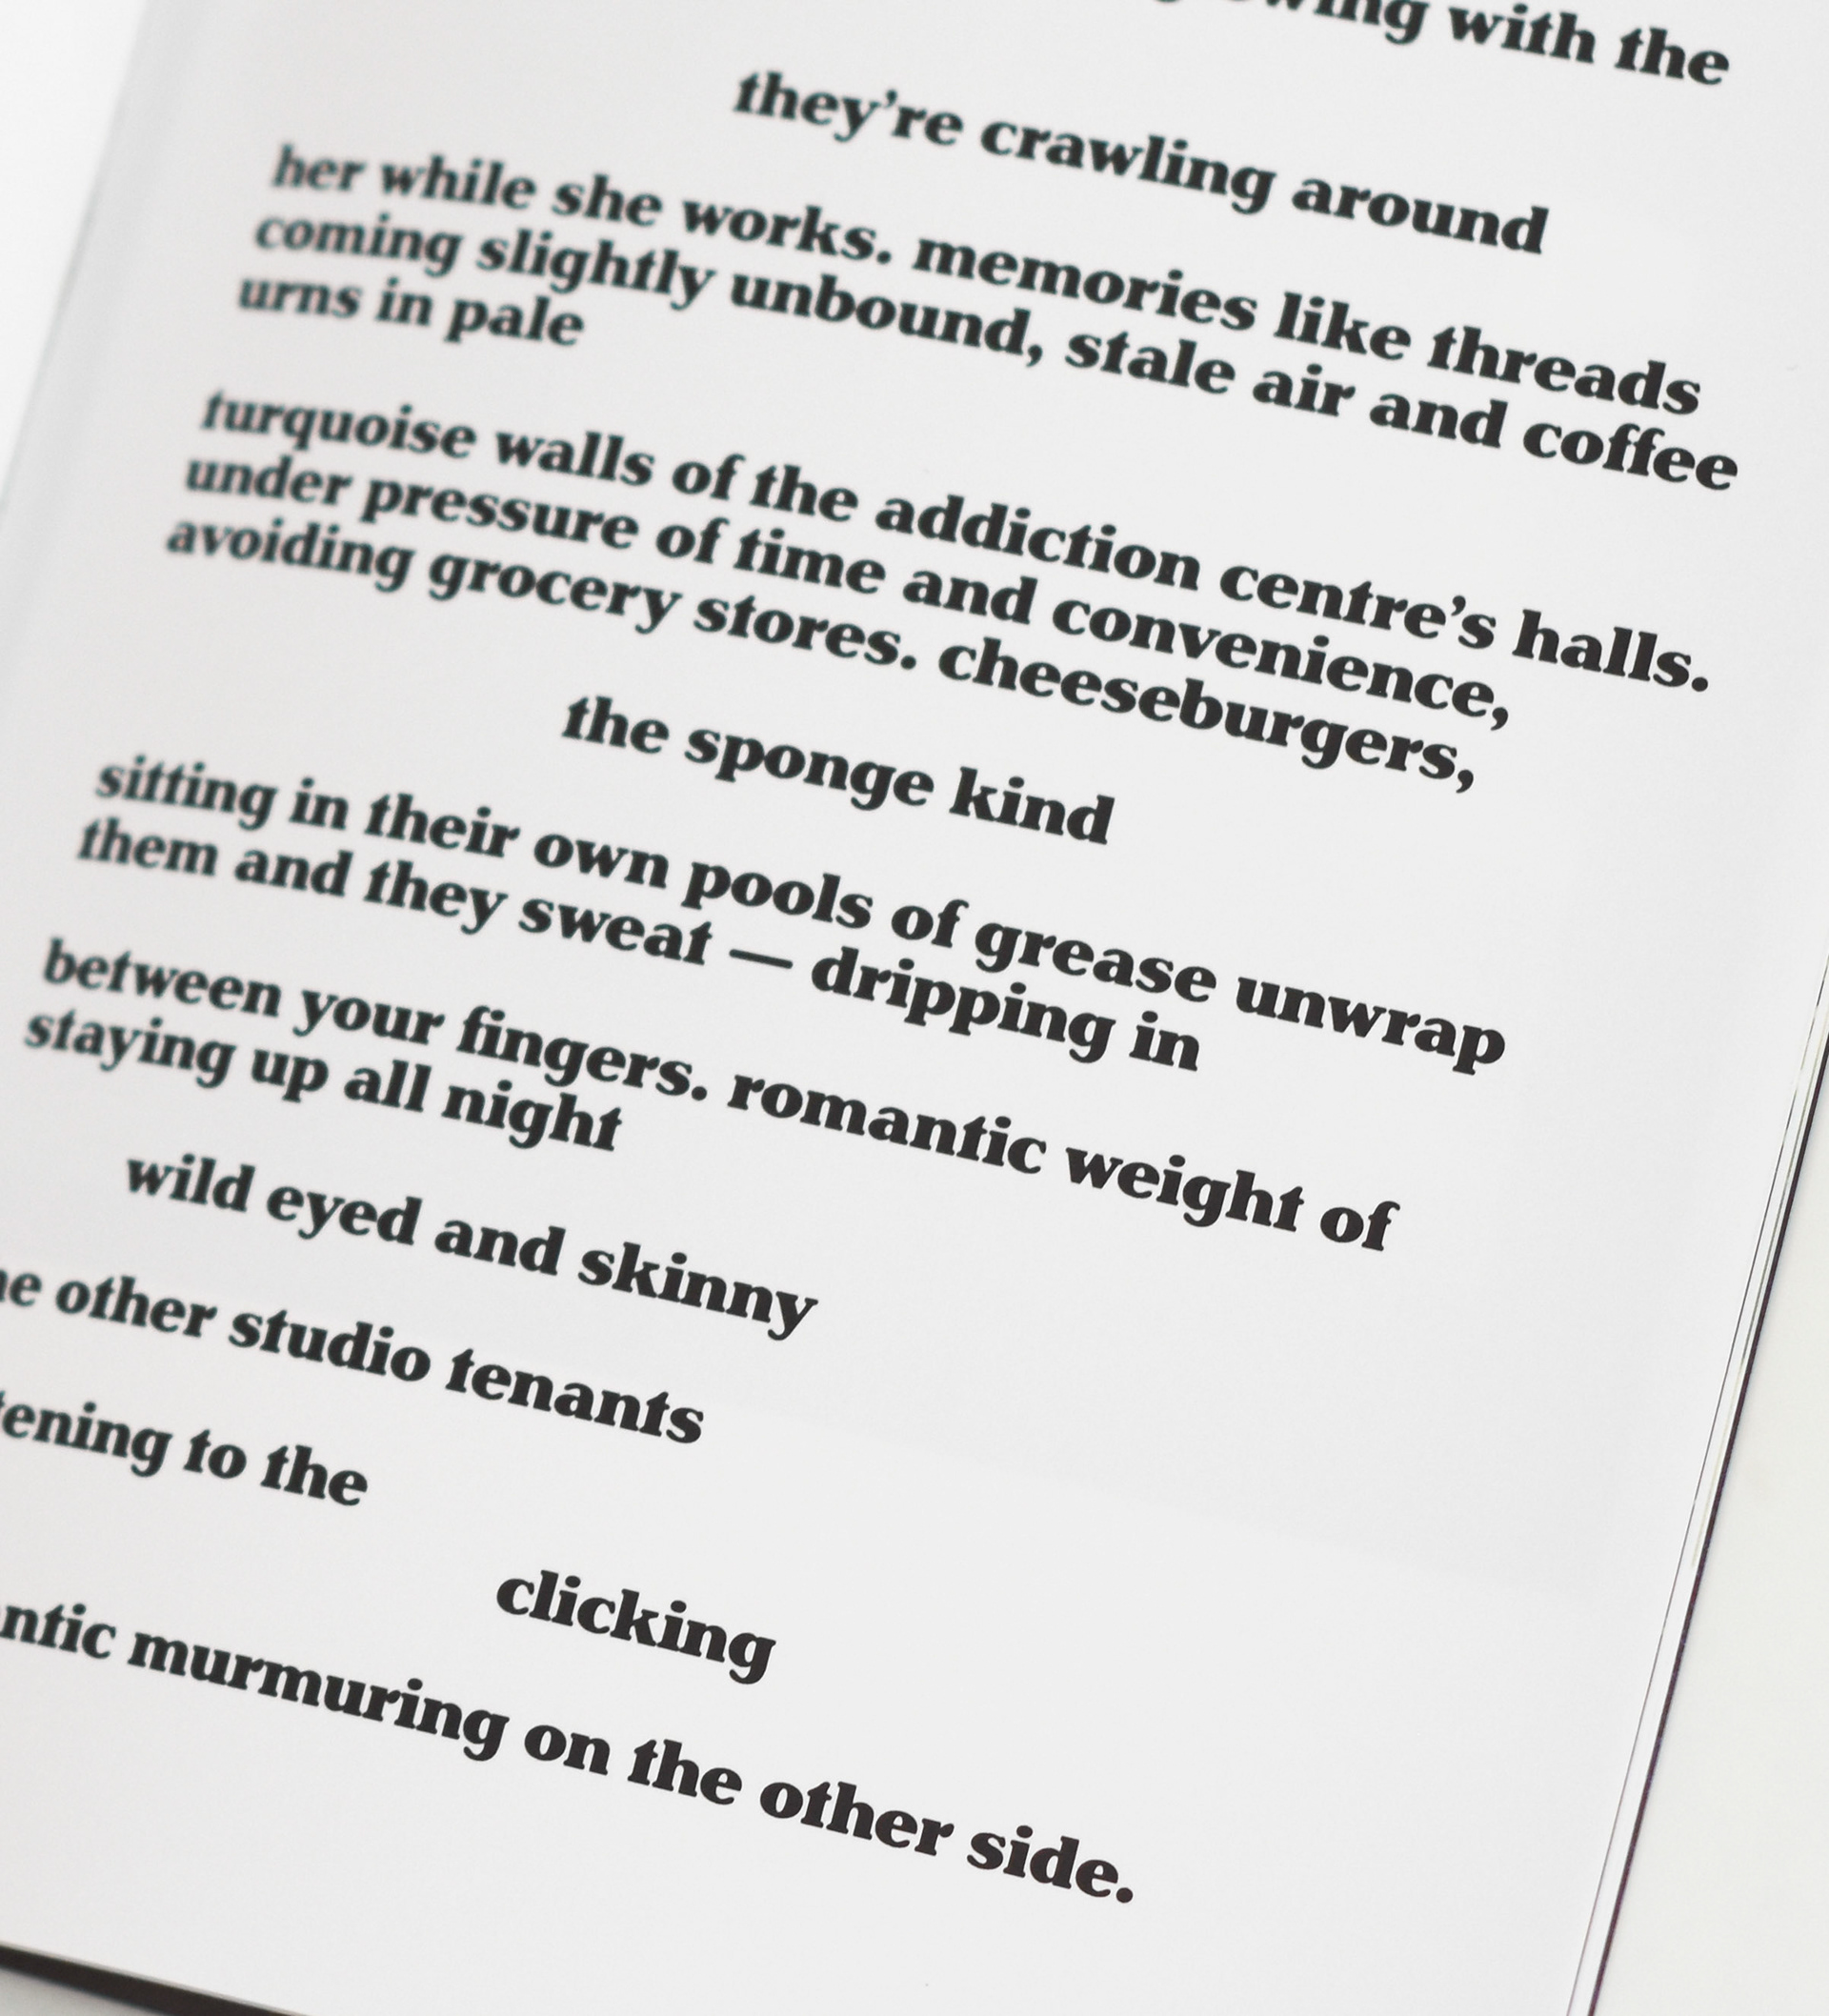 with the
they're crawling around
her while she works. memories like threads
coming slightly unbound, stale air and coffee
urns in pale
turquoise walls of the addiction centre's halls.
under pressure of time and convenience,
avoiding grocery stores. cheeseburgers,
the sponge kind
sitting in their own pools of grease unwrap
them and they sweat — dripping in
between your fingers. romantic weight of
staying up all night
wild eyed and skinny
other studio tenants
to the
clicking
murmuring on the other side.